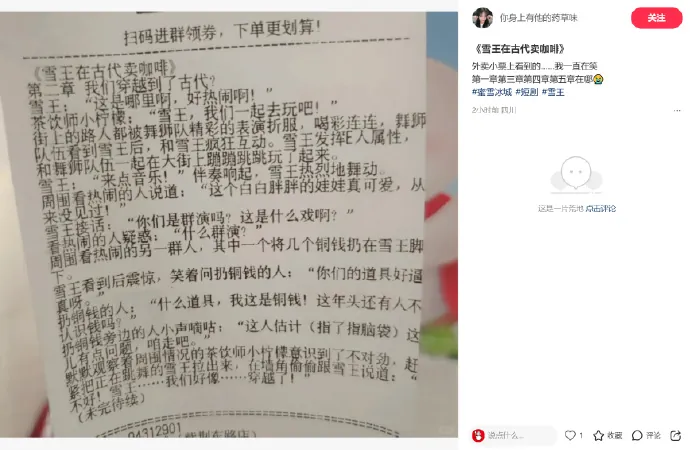 扫码进群领券，下单更划算！
《雪王在古代卖咖啡》
第二章 我们穿越到了古代？
雪王：“这是哪里啊，好热闹啊！”
茶饮师小柠檬：“雪王，我们一起去玩吧！”
街上的路人都被舞狮队精彩的表演折服，喝彩连连，舞狮
队伍看到雪王后，和雪王疯狂互动。雪王发挥E人属性，
和舞狮队伍一起在大街上蹦蹦跳跳玩了起来。
雪王：“来点音乐！”伴奏响起，雪王热烈地舞动。
周围看热闹的人说道：“这个白白胖胖的娃娃真可爱，从
来没见过！”
雪王接话：“你们是群演吗？这是什么戏啊？”
看热闹的人疑惑：“什么群演？”
周围看热闹的另一群人，其中一个将几个铜钱扔在雪王脚
下。
雪王看到后震惊，笑着问扔铜钱的人：“你们的道具好逼
真呀。”
扔铜钱的人：“什么道具，我这是铜钱！这年头还有人不
认识钱吗？”
扔铜钱旁边的人小声嘀咕：“这人估计（指了指脑袋）这
儿有点问题，咱走吧。”
默默观察着周围情况的茶饮师小柠檬意识到了不对劲，赶
紧把正在跳舞的雪王拉出来，在墙角偷偷跟雪王说道：“
不好！雪王……我们好像……穿越了！”
（未完待续）
04312901
你身上有他的药草味
关注
《雪王在古代卖咖啡》
外卖小票上看到的……我一直在笑
第一章第三章第四章第五章在哪😭
#蜜雪冰城 #短剧 #雪王
2小时前 四川
这是一片荒地 点击评论
说点什么...
1
收藏
评论